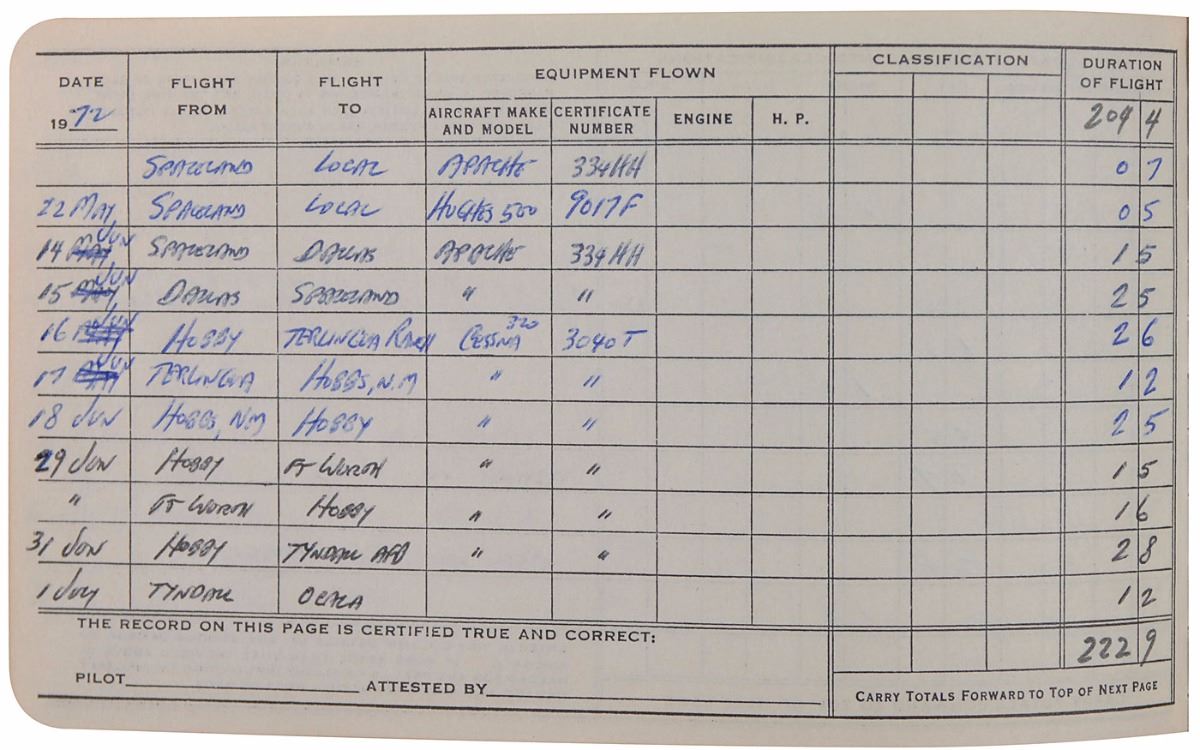 DATE FLIGHT FROM FLIGHT TO EQUIPMENT FLOWN CLASSIFICATION DURATION OF FLIGHT
1972 AIRCRAFT MAKE AND MODEL CERTIFICATE NUMBER ENGINE H. P. 204 4
SPACELAND LOCAL APACHE 334HH 0 7
22 MAY SPACELAND LOCAL HUGHES 500 9017F 0 5
14 JUN SPACELAND DALLAS APACHE 334HH 1 5
15 JUN DALLAS SPACELAND " " 2 5
16 JUN HOBBY TERLINGUA RANCH CESSNA 320 3040T 2 6
17 JUN TERLINGUA HOBBS, N.M " " 1 2
18 JUN HOBBS, NM HOBBY " " 2 5
29 JUN HOBBY FT WORTH " " 1 5
" FT WORTH HOBBY " " 1 6
31 JUN HOBBY TYNDALL AFB " " 2 8
1 JULY TYNDALL OCALA 1 2
THE RECORD ON THIS PAGE IS CERTIFIED TRUE AND CORRECT: 222 9
PILOT ATTESTED BY CARRY TOTALS FORWARD TO TOP OF NEXT PAGE